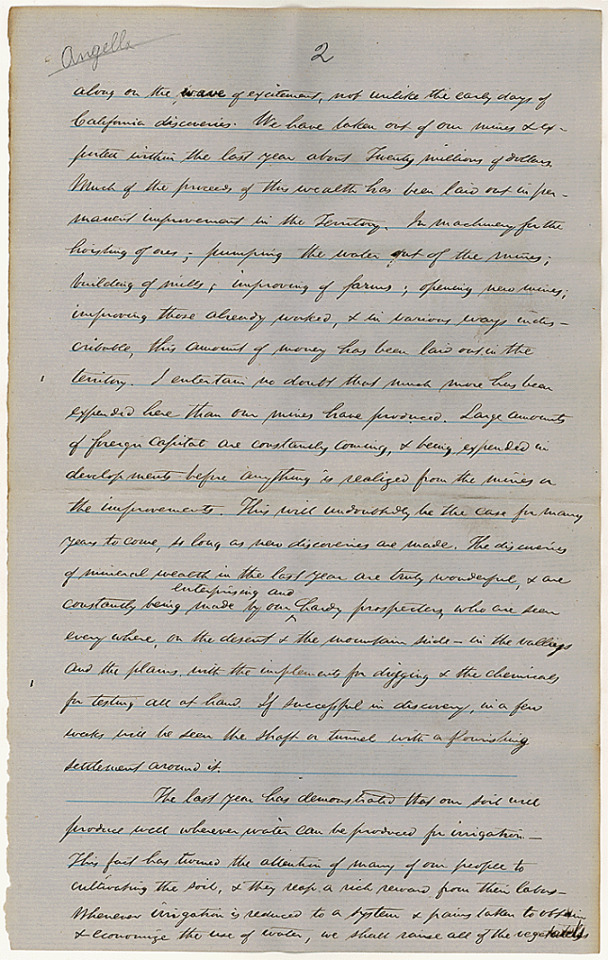 Angell
2
along on the wave of excitement, not unlike the early days of
California discoveries. We have taken out of our mines & ex-
ported within the last year about Twenty millions of dollars.
Much of the proceeds of this wealth has been laid out in per-
manent improvement in the Territory. In machinery for the
hoisting of ores; pumping the water out of the mines;
building of mills; improving of farms; opening new mines;
improving those already worked, & in various ways indes-
cribable, this amount of money has been laid out in the
territory. I entertain no doubt that much more has been
expended here than our mines have produced. Large amounts
of foreign capital are constantly coming, & being expended in
developments before anything is realized from the mines or
the improvements. This will undoubtedly be the case for many
years to come, so long as new discoveries are made. The discoveries
of mineral wealth in the last year are truly wonderful, & are
enterprising and
constantly being made by our ^ hardy prospectors, who are seen
every where, on the desert & the mountain side – in the valleys
and the plains, with the implements for digging & the chemicals
for testing all at hand. If successful in discovery, in a few
weeks will be seen the shaft or tunnel with a flourishing
settlement around it.
The last year has demonstrated that our soil will
produce well wherever water can be produced for irrigation –
This fact has turned the attention of many of our people to
cultivating the soil, & they reap a rich reward from their labor –
Whenever irrigation is reduced to a system & pains taken to obtain
& economize the use of water, we shall raise all of the vegetables